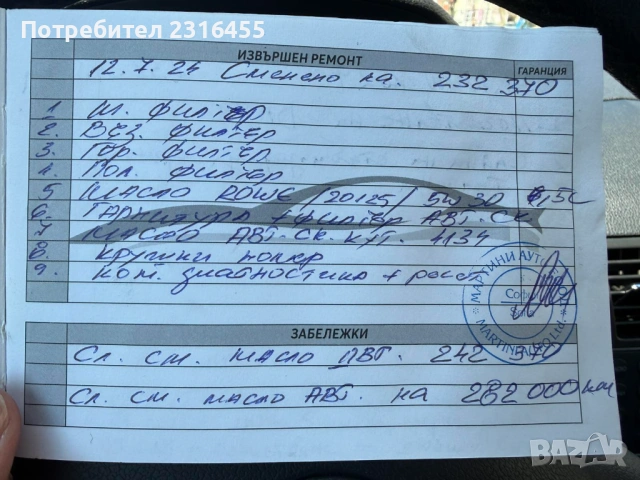 Потребител 2316455
ИЗВЪРШЕН РЕМОНТ
ГАРАНЦИЯ
12.7.24 Сменено на. 232 370
1. М. филтер
2. Въз. филтер
3. Гор. филтер
4. Пол. филтер
5 Масло ROWE /20125/ 5W30 6,5L
6. Гарнитура + филтер АВТ. СК.
7 Масло АВТ. СК. КУТ. 4134
8. крушки
9. ком. диагностика +
МАРТИНИ АУТО
Софи
MARTINI AUTO Ltd.
ЗАБЕЛЕЖКИ
Сл. см. масло ДВГ. 242 370
Сл. см. масло АВТ. на 282 000 км
BAZAR